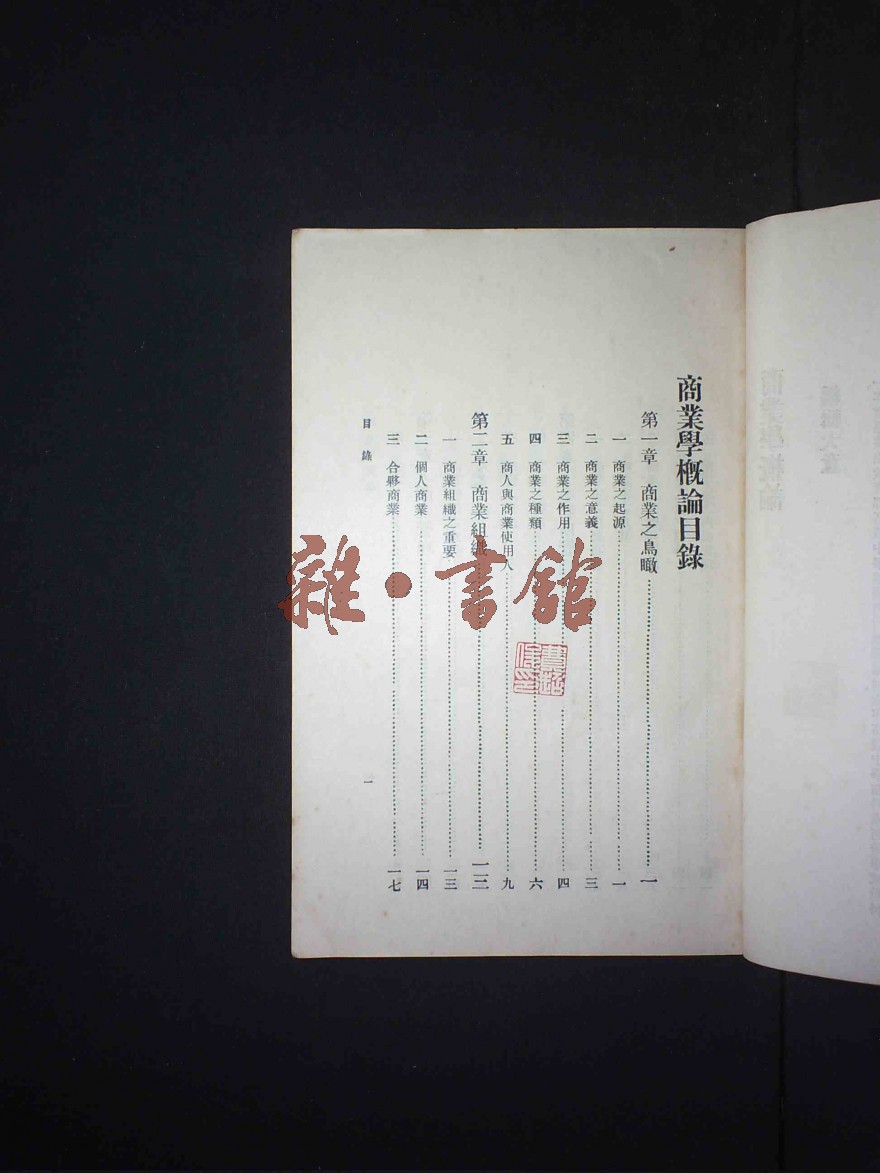 商業學概論目錄
第一章 商業之鳥瞰……一
一 商業之起源……一
二 商業之意義……三
三 商業之作用……四
四 商業之種類……六
五 商人與商業使用人……九
第二章 商業組織……一二
一 商業組織之重要……一三
二 個人商業……一四
三 合夥商業……一七
目錄
一
雜·書館